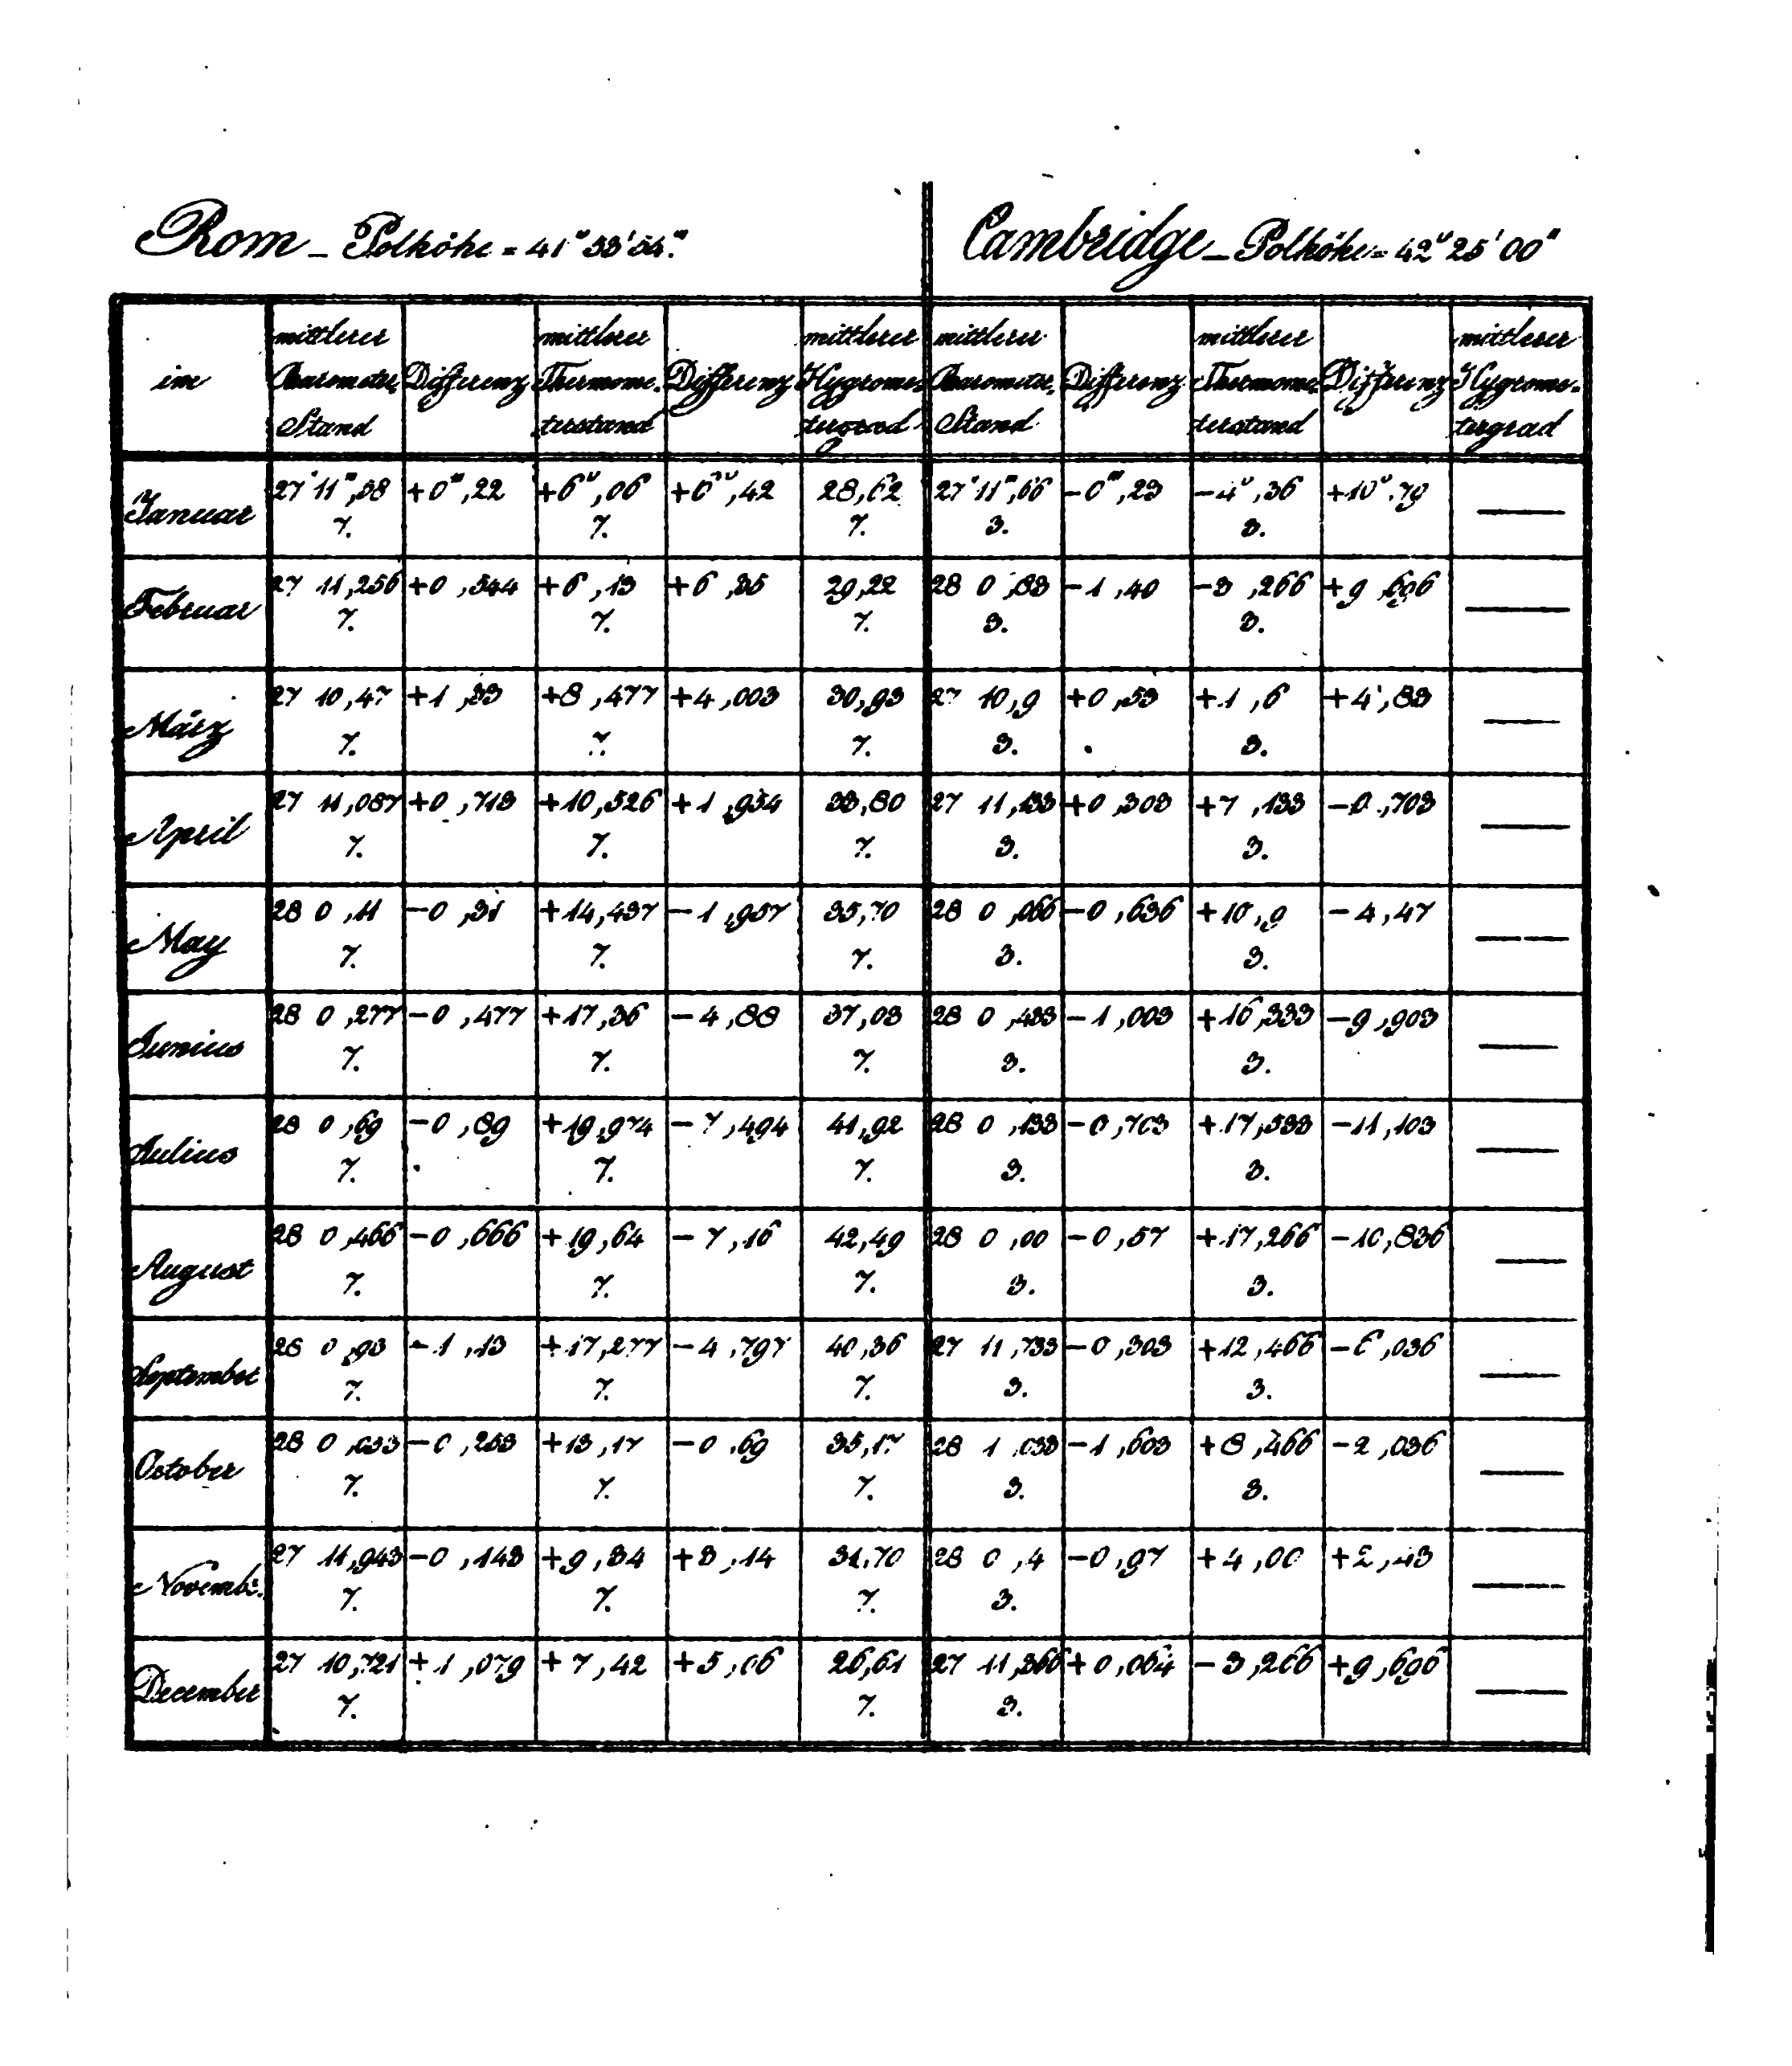 Rom – Polhöhe = 41° 53' 54". Cambridge – Polhöhe = 42° 25' 00"
im mittlerer Barometer-Stand Differenz mittlerer Thermometerstand Differenz mittlerer Hygrometergrad mittlerer Barometer-Stand Differenz mittlerer Thermometerstand Differenz mittlerer Hygrometergrad
Januar 27" 11''',38 +0''',22 +6°,06 +6°,42 28,62 27" 11''',66 –0''',23 –4°,36 +10°,79 —
7. 7. 7. 3. 3.
Februar 27 11,256 +0,344 +6,13 +6,35 29,22 28 0,83 –1,40 –3,266 +9,696 —
7. 7. 7. 3. 3.
März 27 10,47 +1,33 +8,477 +4,003 30,93 27 10,9 +0,53 +1,6 +4,83 —
7. 7. 7. 3. 3.
April 27 11,087 +0,713 +10,526 +1,954 33,80 27 11,133 +0,303 +7,133 –0,703 —
7. 7. 7. 3. 3.
May 28 0,11 –0,31 +14,437 –1,957 35,70 28 0,066 –0,636 +10,9 –4,47 —
7. 7. 7. 3. 3.
Junius 28 0,277 –0,477 +17,36 –4,88 37,03 28 0,433 –1,003 +16,333 –9,903 —
7. 7. 7. 3. 3.
Julius 28 0,69 –0,89 +19,974 –7,494 41,92 28 0,133 –0,703 +17,533 –11,103 —
7. 7. 7. 3. 3.
August 28 0,466 –0,666 +19,64 –7,16 42,49 28 0,00 –0,57 +17,266 –10,836 —
7. 7. 7. 3. 3.
September 28 0,93 –1,13 +17,277 –4,797 40,36 27 11,733 –0,303 +12,466 –6,036 —
7. 7. 7. 3. 3.
October 28 0,053 –0,253 +13,17 –0,69 35,17 28 1,033 –1,603 +8,466 –2,036 —
7. 7. 7. 3. 3.
Novembr. 27 11,943 –0,143 +9,34 +3,14 31,70 28 0,4 –0,97 +4,00 +2,43 —
7. 7. 7. 3.
December 27 10,721 +1,079 +7,42 +5,06 26,61 27 11,366 +0,064 –3,266 +9,696 —
7. 7. 3.